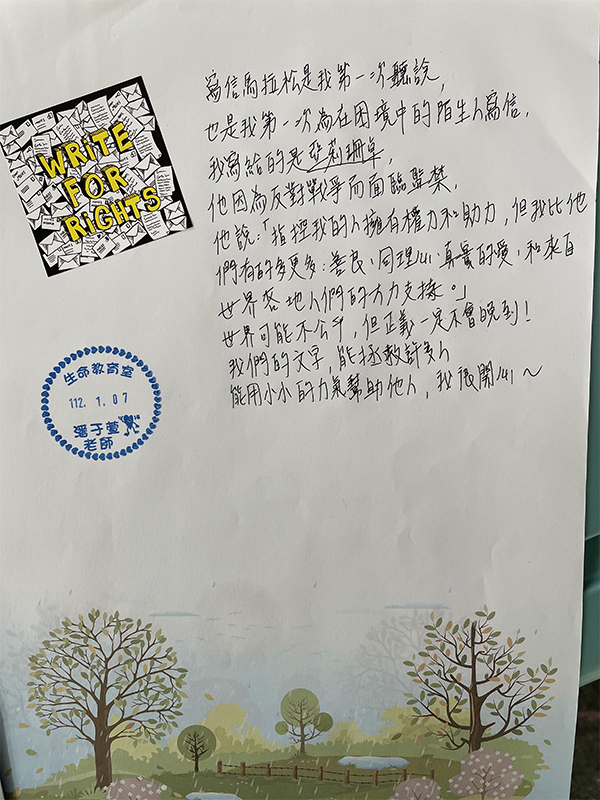 WRITE
FOR
RIGHTS
寫信馬拉松是我第一次聽說,
也是我第一次為在困境中的陌生人寫信,
我寫給的是亞莉珊卓,
他因為反對戰爭而面臨監禁,
他說:「指控我的人擁有權力和助力,但我比他
們有的多更多:善良、同理心、真實的愛、和來自
世界各地人們的大力支援。」
世界可能不公平,但正義一定不會晚到!
我們的文字,能拯救許多人
能用小小的力氣幫助他人,我很開心～
生命教育室
112.1.07
潘子萱
老師